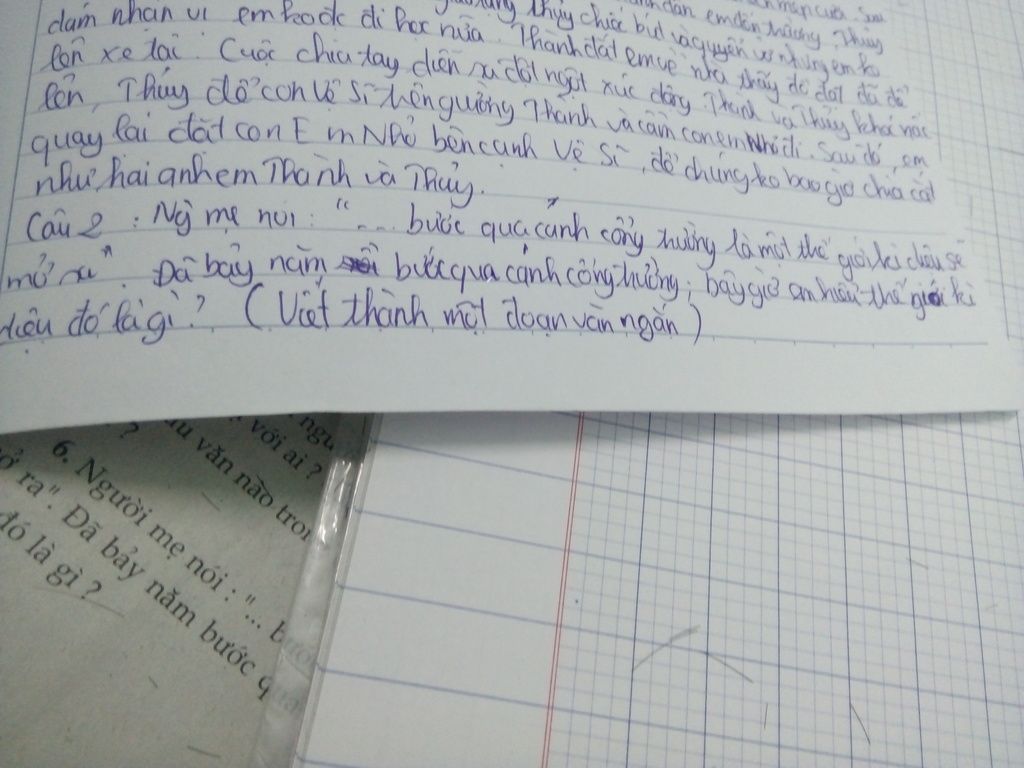 dám nhận vì em ko đc đi học nữa. Thành dắt em về nhà thấy đồ đạt đã để
lên xe tải. Cuộc chia tay diễn ra đột ngột xúc động Thành và Thủy khóc
lên, Thủy để con Vệ Sĩ trên giường Thành và cầm con em Nhỏ đi. Sau đó, em
quay lại đặt con Em Nhỏ bên cạnh Vệ Sĩ, để chúng ko bao giờ chia cắt
như hai anh em Thành và Thủy.
Câu 2 : Ng mẹ nói : "... bước qua cánh cổng trường là một thế giới kì diệu sẽ
mở ra". Đã bảy năm bước qua cánh cổng trường, bây giờ em hiểu thế giới kì
diệu đó là gì? (Viết thành một đoạn văn ngắn)
ngư
? với ai ?
âu văn nào tron
6. Người mẹ nói : "... bước
ở ra". Đã bảy năm bước qua
đó là gì ?